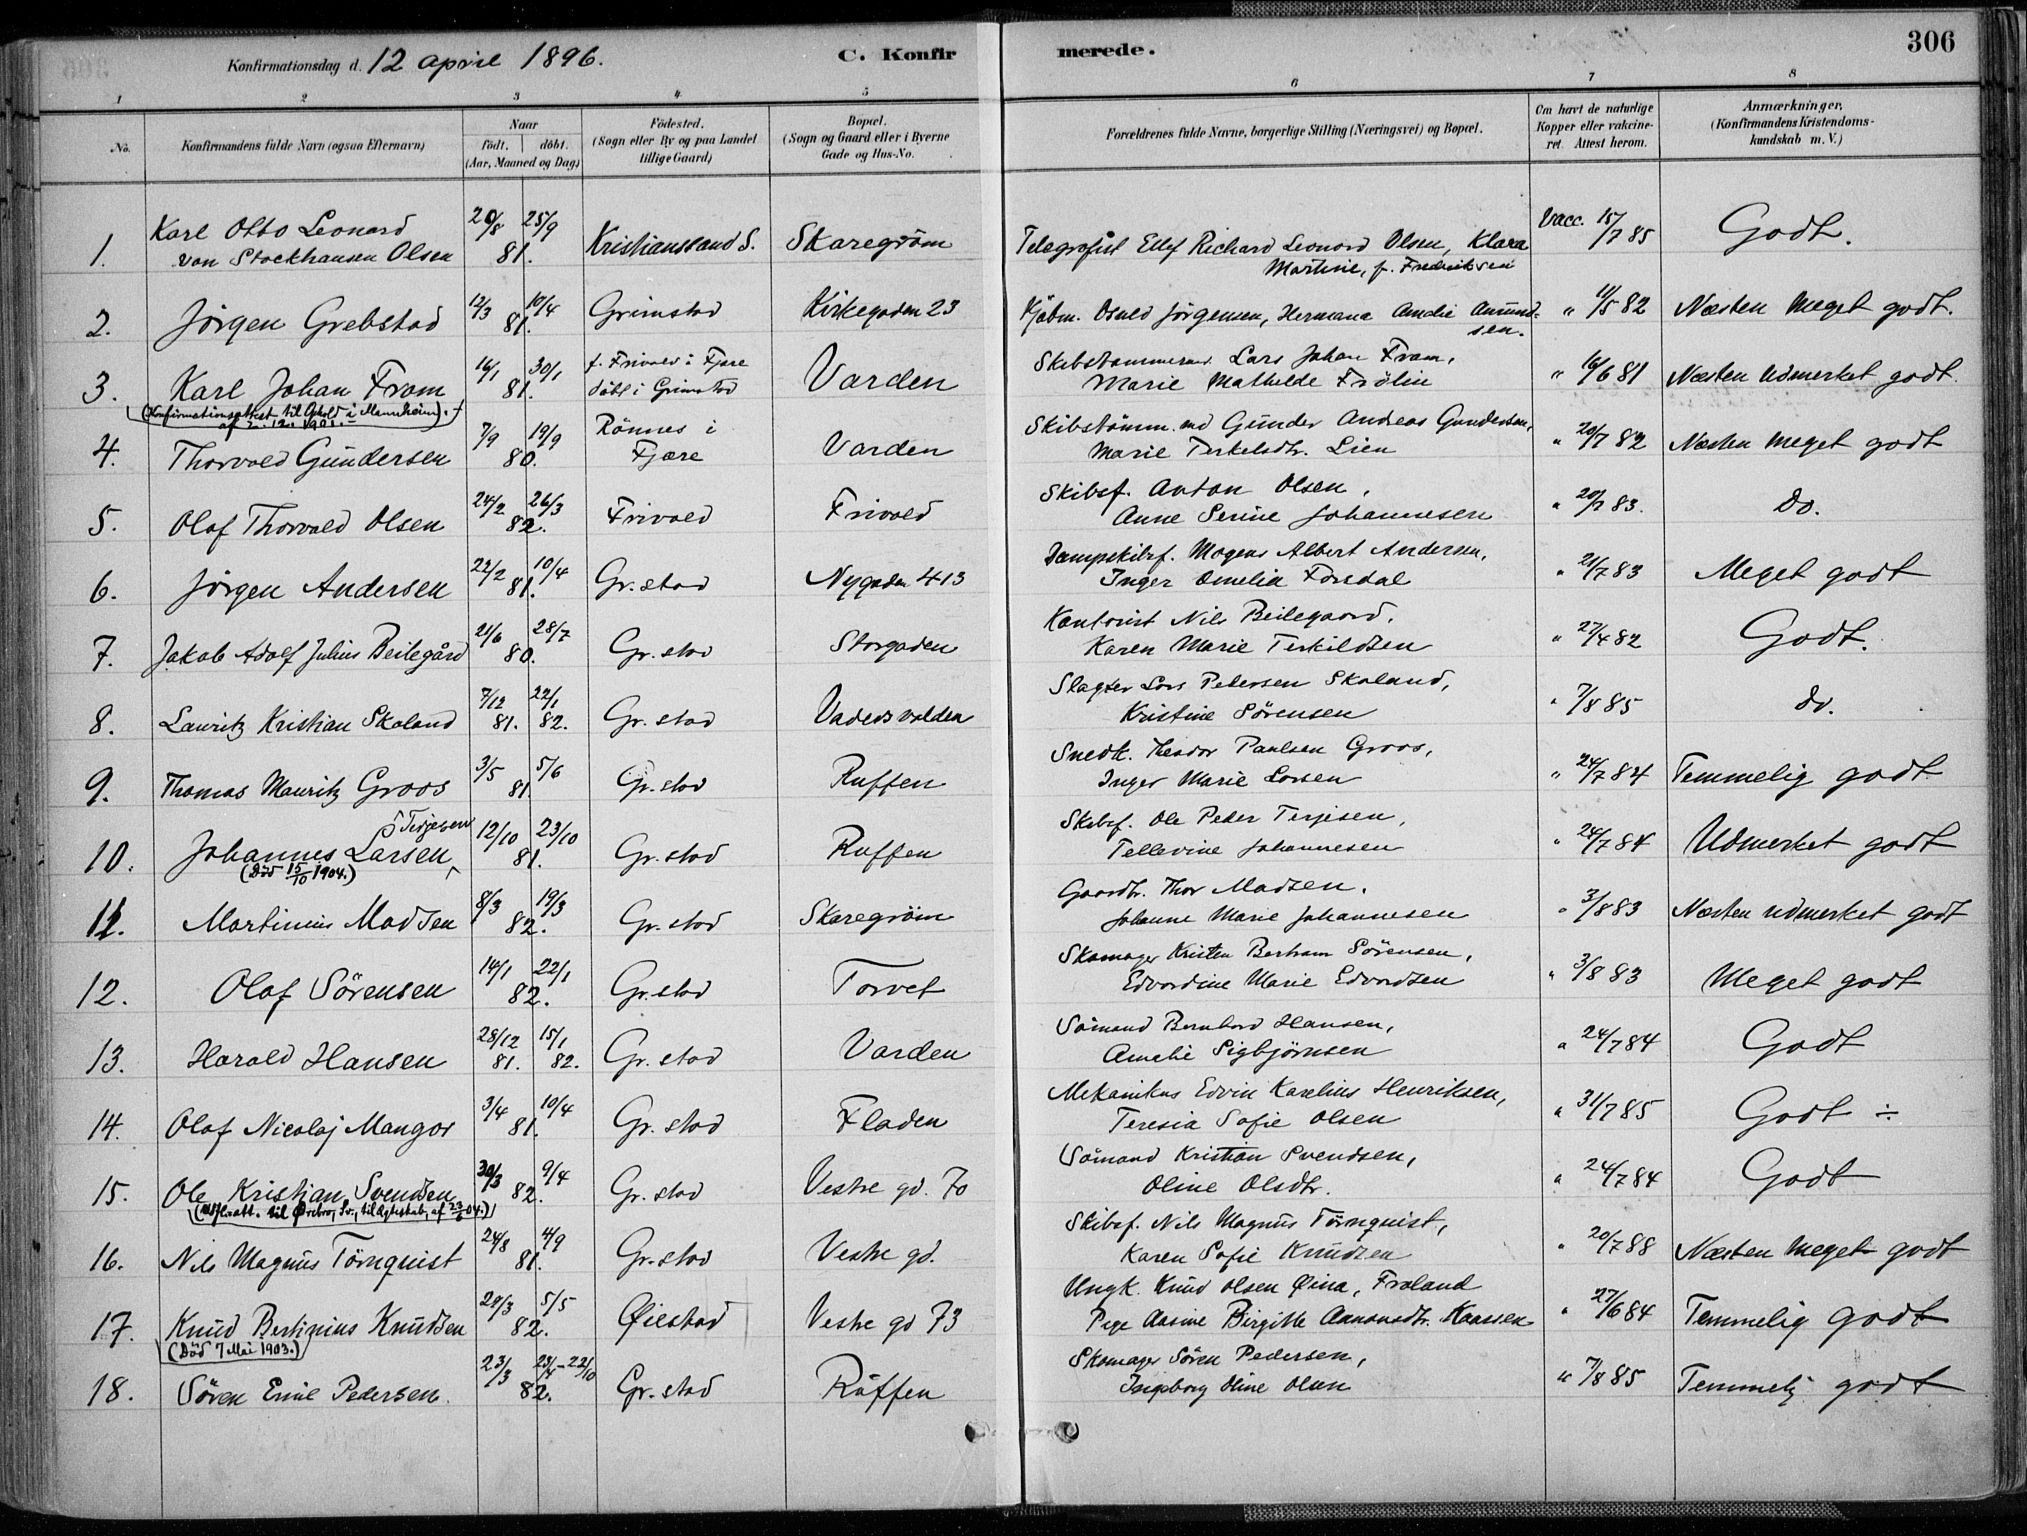 306
Konfirmationsdag d. 12 april 1896. C. Konfir merede.
1 2 3 4 5 6 7 8
No. Konfirmandens fulde Navn (ogsaa Efternavn) Naar födt. döbt. (Aar, Maaned og Dag) Födested. (Sogn eller By og paa Landet tillige Gaard) Bopæl. (Sogn og Gaard eller i Byerne Gade og Hus-No. Forældrenes fulde Navne, borgerlige Stilling (Næringsvei) og Bopæl. Om havt de naturlige Kopper eller vakcineret. Attest herom. Anmærkninger. (Konfirmandens Kristendomskundskab m. V.)
1. Karl Otto Leonard von Stockhausen Olsen 20/8 25/9 81. Kristianssand S. Skaregrøm Telegrafist Ellef Richard Leonard Olsen, Klara Martine, f. Frederiksen Vacc. 15/7 85 Godt.
2. Jörgen Grebstad 12/3 10/4 81. Grimstad Kirkegaden 23 Kjöbm. Osuld Jörgensen, Hermana Amalie Amundsen. " 11/5 82 Næsten Meget godt.
3. Karl Johan Fram 16/1 30/1 81. f. Frivold i Fjære döbt i Grimstad Varden Skibstömmermd. Lars Johan Fram, Marie Mathilde Frölin " 16/6 81 Næsten Udmerket godt.
(Konfirmationsattest til Ophold i Mannheim) af 2. 12. 1901.
4. Thorvald Gundersen 7/9 19/9 80. Rönnes i Fjære Varden Skibstömm.md Gunder Andreas Gundersen, Marie Terkelsdtr. Lien " 20/7 82 Næsten meget godt
5. Olaf Thorvald Olsen 24/2 26/3 82. Frivold Frivold Skibsf. Anton Olsen, Anne Serine Johannesen " 20/7 83. Do.
6. Jörgen Andersen 22/2 10/4 81. Gr.stad Nygaden 413 Dampskibsf. Mogens Albert Andersen, Inger Amelia Forsdal " 21/7 83 Meget godt
7. Jakob Adolf Julius Beilegård 21/6 28/7 80. Gr.stad Storgaden Kontorist Nils Beilegaard, Karen Marie Terkildsen " 27/4 82 Godt.
8. Lauritz Kristian Skaland 7/12 81. 22/1 82. Gr.stad Slagter Lars Pedersen Skaland, Kristine Sörensen " 7/8 85 do.
9. Thomas Mauritz Groos 3/5 5/6 81. Gr.stad Ruffen Snedk. Theodor Paulsen Groos, Inger Marie Larsen " 24/7 84 Temmelig godt
10. Johannes Larsen Terjesen 12/10 23/10 81. Gr.stad Ruffen Skibsf. Ole Peder Terjesen, Tellevine Johannesen " 24/7 84 Udmerket godt
(Död 15/10 1904.)
11. Martinius Madsen 8/3 19/3 82. Gr.stad Skaregrøm Gaardbr. Thor Madsen. Johanne Marie Johannesen " 3/8 83 Næsten udmerket godt
12. Olaf Sörensen 14/1 22/1 82. Gr.stad Torvet Skomager Kristen Bertram Sörensen, Edvardine Marie Edvardsen " 3/8 83 Meget godt
13. Harald Hansen 28/12 81. 15/1 82. Gr.stad Varden Sömand Bernhard Hansen, Amelie Sigbjørnsen " 24/7 84 Godt
14. Olaf Nicolaj Mangor 3/4 10/4 81. Gr.stad Fladen Mekanikus Edvin Karelius Henriksen, Teresia Sofie Olsen " 31/7 85 Godt ÷
15. Ole Kristian Svendsen 30/3 9/4 82. Gr.stad Vestre gd. 70 Sömand Kristian Svendsen, Oline Olsdtr. " 24/7 84 Godt
til Örebro, Sv., til Ægteskab, af 23/6 04.)
16. Nils Magnus Törnquist 24/8 4/9 81. Gr.stad Vestre gd. Skibsf. Nils Magnus Törnquist, Karen Sofie Knudsen " 20/7 88 Næsten meget godt
17. Knud Bertinius Knudsen 29/3 5/5 82. Øiestad Vestre gd 73 Ungk. Knud Olsen Øina, Froland Pige Aasine Birgitte Aanonsdtr. Kaassen " 27/6 84 Temmelig godt
(Död 7 Mai 1903.)
18. Sören Emil Pedersen. 23/3 23/4 - 22/10 82. Gr.stad Ruffen Skomager Sören Pedersen, Ingeborg Oline Olsen " 7/8 85 Temmelig godt